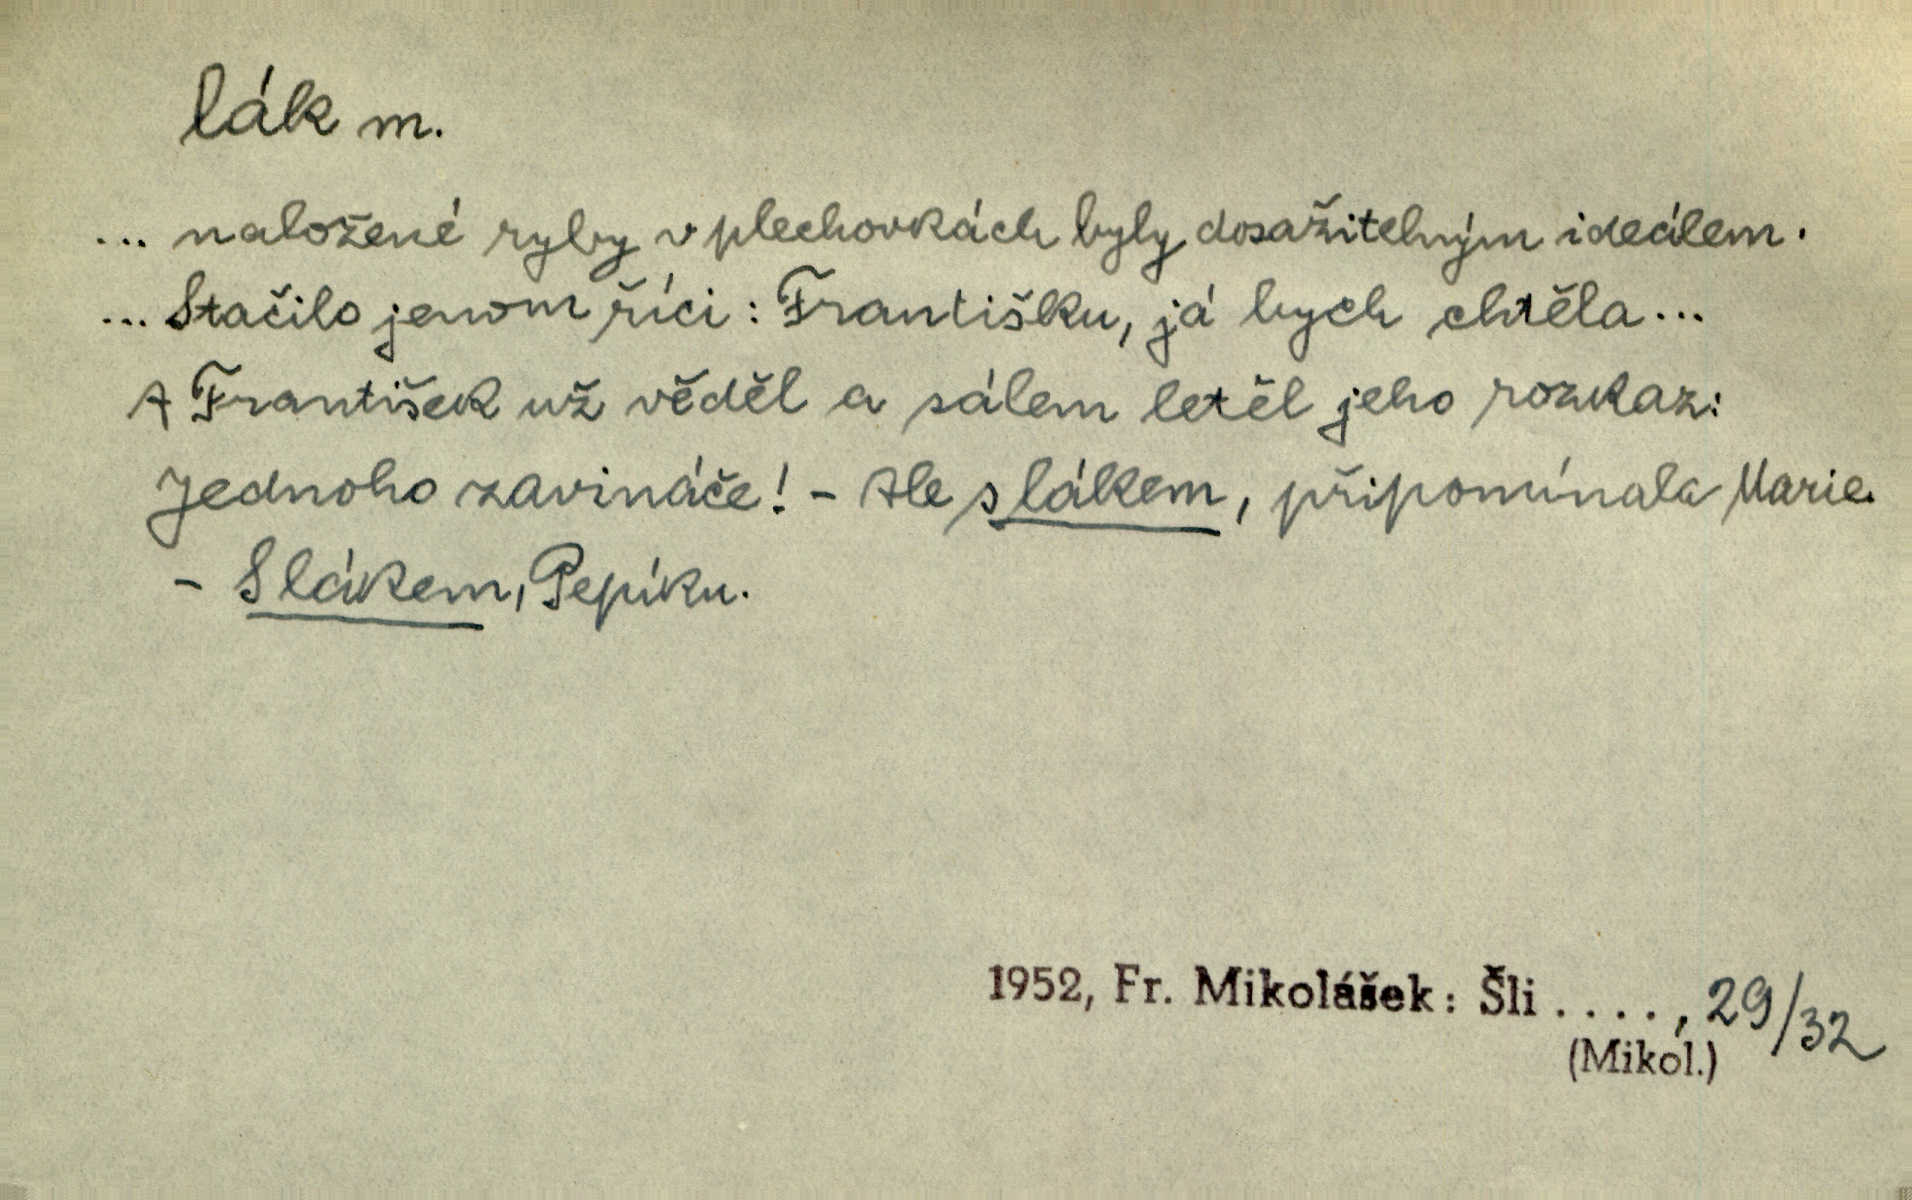 lák m.
... naložené ryby v plechovkách byly dosažitelným ideálem.
... Stačilo jenom říci: Františku, já bych chtěla...
A František už věděl a sálem letěl jeho rozkaz:
Jednoho zavináče! - Ale s lákem, připomínala Marie.
- S lákem, Pepíku.
1952, Fr. Mikolášek: Šli . . . . , 29/32
(Mikol.)